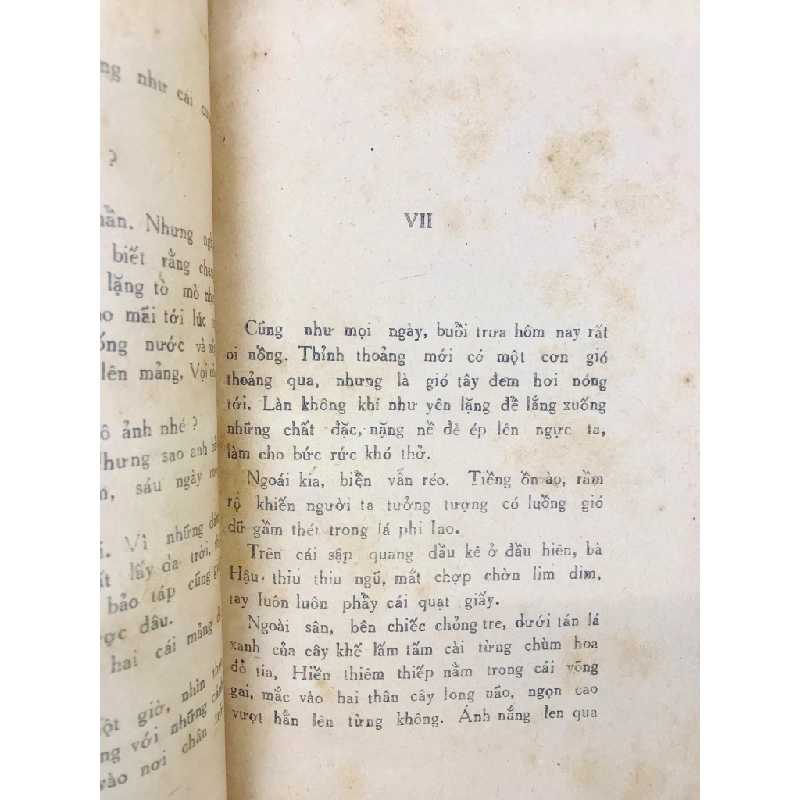 như cái
?
Nhưng
biết rằng
lặng tò mò
mãi tới lúc
nước và
lên mảng, Vọi
ảnh nhé ?
Nhưng sao anh
sáu ngày
Vì những
lấy da trời,
bảo táp cũng
đâu.
hai cái mảng
giờ, nhìn
với những
vào nơi chân
VII
Cũng như mọi ngày, buổi trưa hôm nay rất
oi nồng. Thỉnh thoảng mới có một cơn gió
thoảng qua, nhưng là gió tây đem hơi nóng
tới. Làn không khí như yên lặng để lắng xuống
những chất đặc, nặng nề đè ép lên ngực ta,
làm cho bức rức khó thở.
Ngoái kia, biện vẫn réo. Tiếng ồn ào, rầm
rộ khiến người ta tưởng tượng có luồng gió
dữ gầm thét trong lá phi lao.
Trên cái sập quang dầu kê ở đầu hiên, bà
Hậu thiu thiu ngũ, mắt chợp chờn lim dim,
tay luôn luôn phẩy cái quạt giấy.
Ngoài sân, bên chiếc chõng tre, dưới tán lá
xanh của cây khế lấm tấm cài từng chùm hoa
đỏ tía, Hiền thiêm thiếp nằm trong cái võng
gai, mắc vào hai thân cây long não, ngọn cao
vượt hẳn lên từng không. Ánh nắng len qua